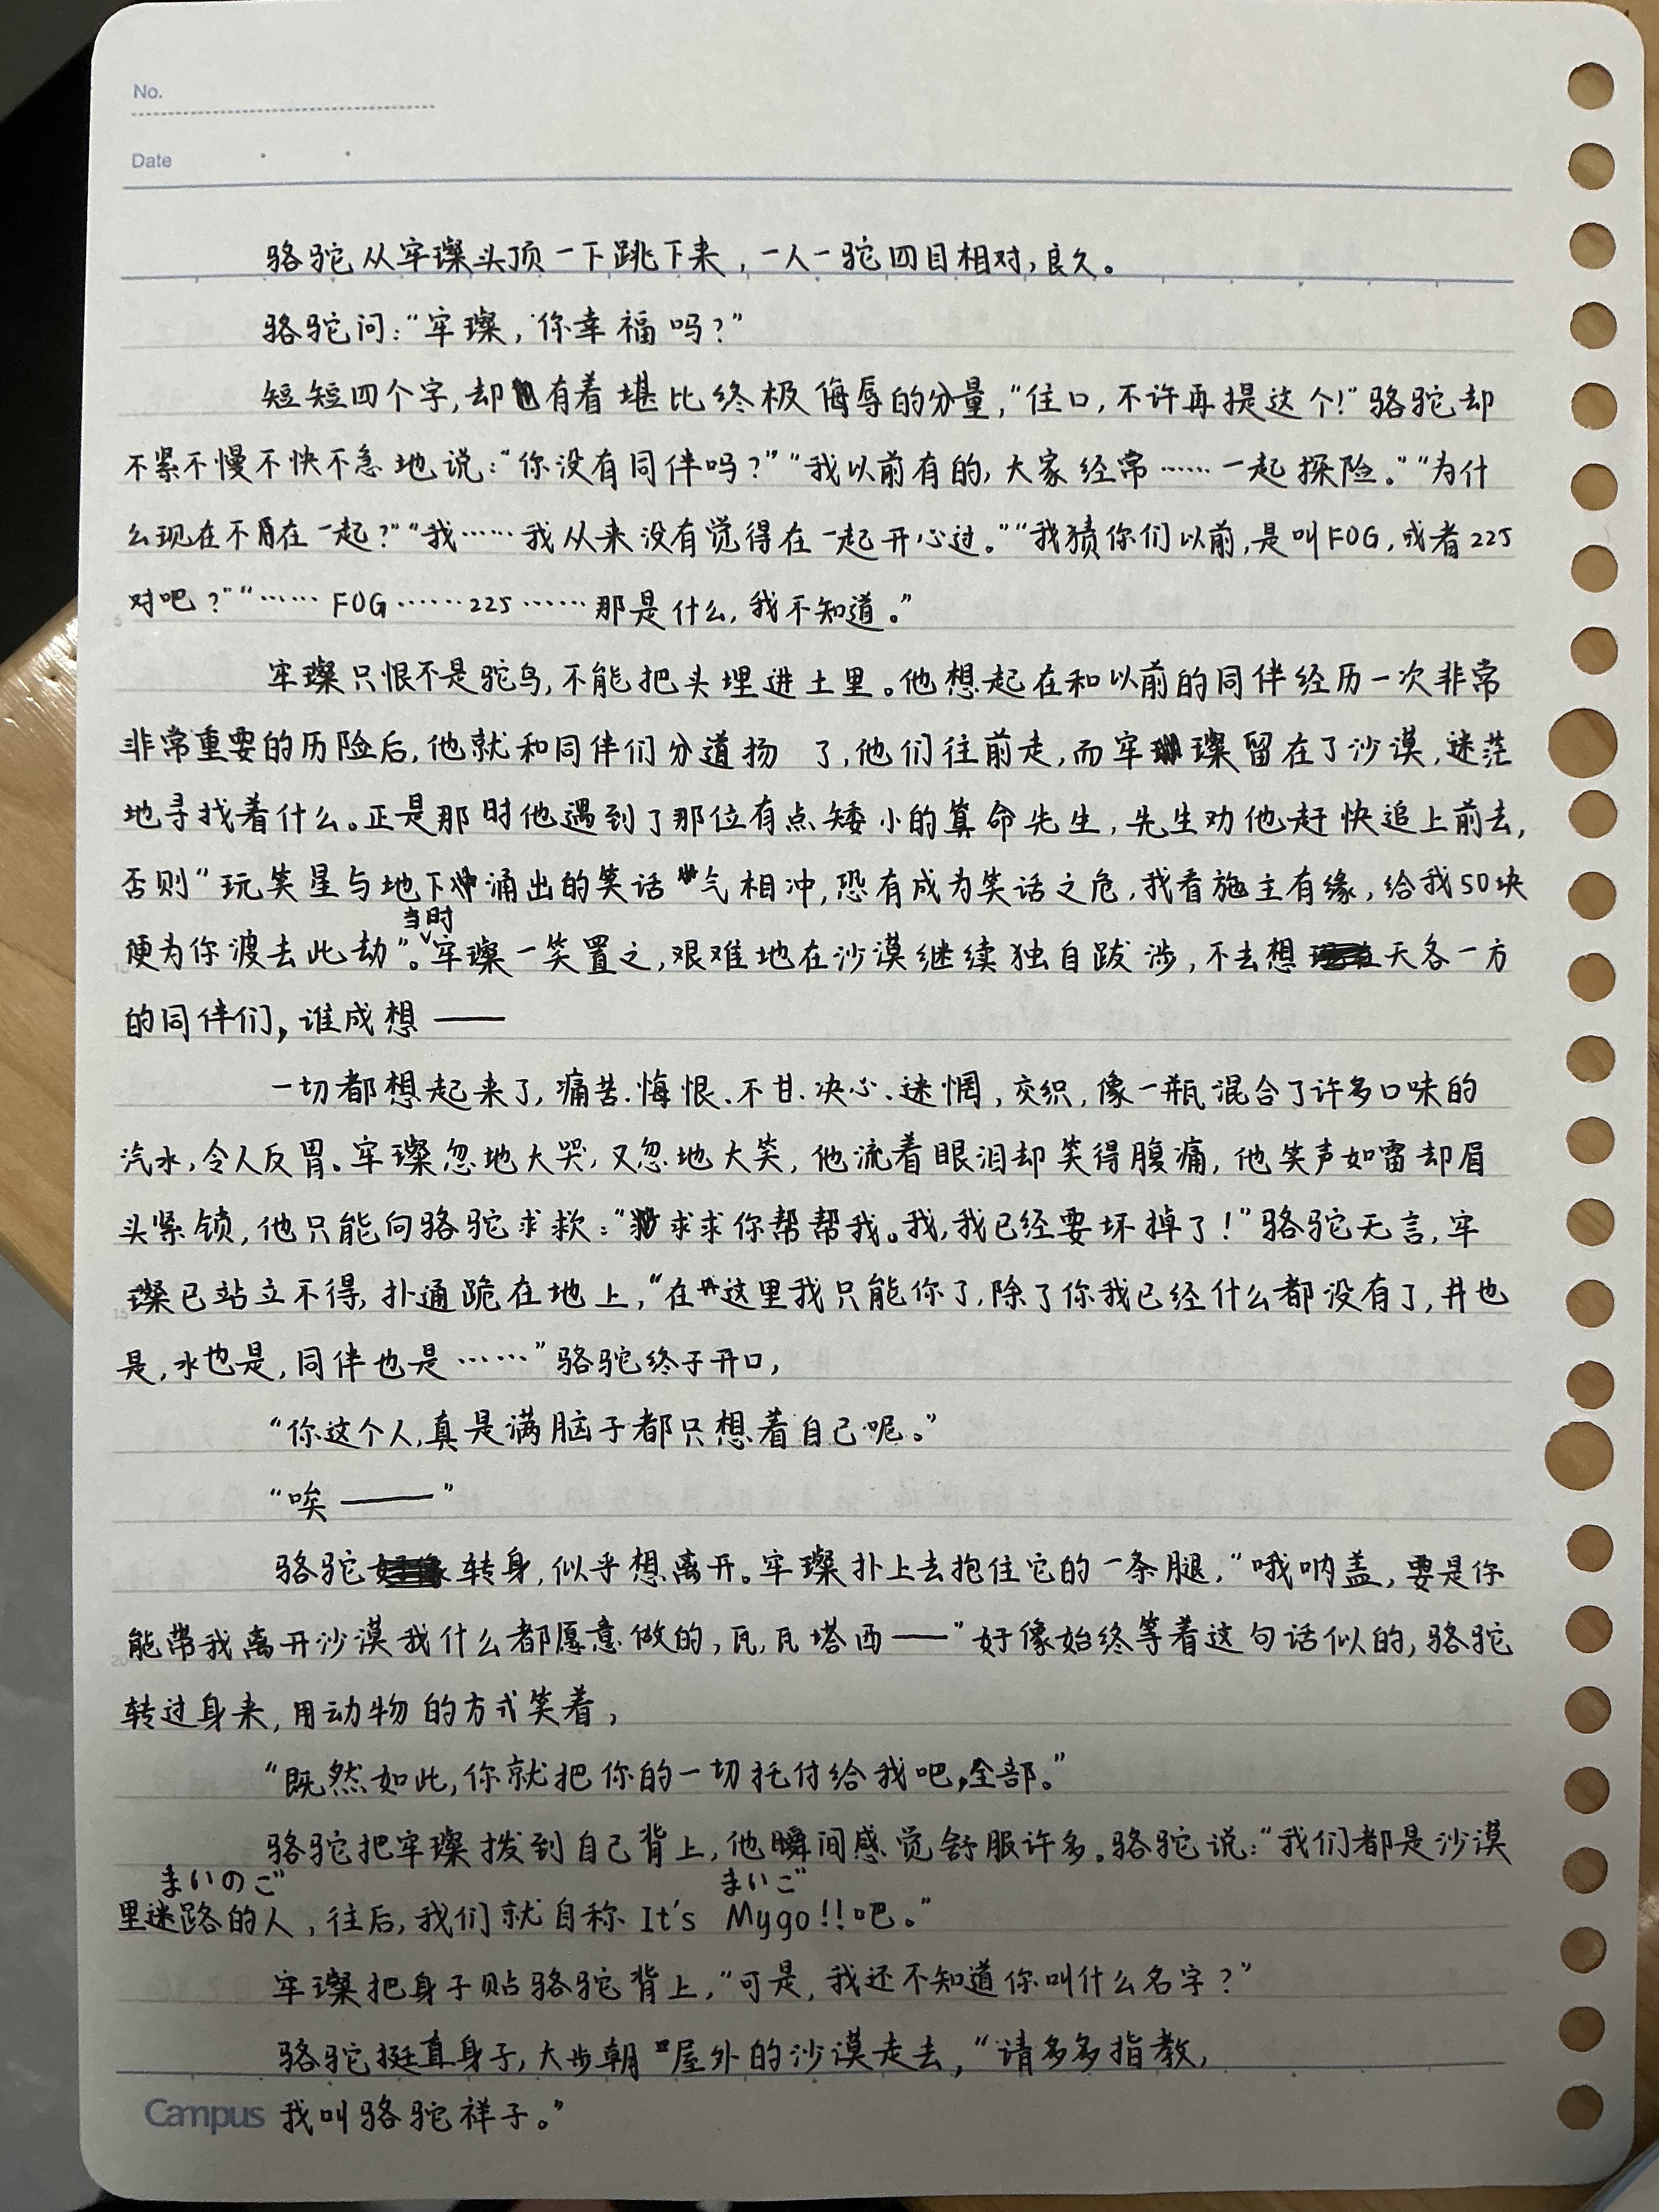 No.
Date
骆驼从牢璨头顶一下跳下来，一人一驼四目相对，良久。
骆驼问：“牢璨，你幸福吗？”
短短四个字，却有着堪比终极侮辱的分量，“住口，不许再提这个！”骆驼却
不紧不慢不快不急地说：“你没有同伴吗？”“我以前有的，大家经常……一起探险。”“为什
么现在不在一起？”“我……我从来没有觉得在一起开心过。”“我猜你们以前，是叫FOG，或者225
对吧？”“……FOG……225……那是什么，我不知道。”
牢璨只恨不是驼鸟，不能把头埋进土里。他想起在和以前的同伴经历一次非常
非常重要的历险后，他就和同伴们分道扬 了，他们往前走，而牢璨留在了沙漠，迷茫
地寻找着什么。正是那时他遇到了那位有点矮小的算命先生，先生劝他赶快追上前去，
否则“玩笑星与地下涌出的笑话气相冲，恐有成为笑话之危，我看施主有缘，给我50块
便为你渡去此劫”。当时牢璨一笑置之，艰难地在沙漠继续独自跋涉，不去想天各一方
的同伴们，谁成想——
一切都想起来了，痛苦、悔恨、不甘、决心、迷惘，交织，像一瓶混合了许多口味的
汽水，令人反胃。牢璨忽地大哭，又忽地大笑，他流着眼泪却笑得腹痛，他笑声如雷却眉
头紧锁，他只能向骆驼求救：“求求你帮帮我。我，我已经要坏掉了！”骆驼无言，牢
璨已站立不得，扑通跪在地上，“在这里我只能你了，除了你我已经什么都没有了，井也
是，水也是，同伴也是……”骆驼终于开口，
“你这个人，真是满脑子都只想着自己呢。”
“唉——”
骆驼转身，似乎想离开。牢璨扑上去抱住它的一条腿，“哦呐盖，要是你
能带我离开沙漠我什么都愿意做的，瓦，瓦塔西——”好像始终等着这句话似的，骆驼
转过身来，用动物的方式笑着，
“既然如此，你就把你的一切托付给我吧，全部。”
骆驼把牢璨拨到自己背上，他瞬间感觉舒服许多。骆驼说：“我们都是沙漠
まいのご まいご
里迷路的人，往后，我们就自称 It's Mygo!!吧。”
牢璨把身子贴骆驼背上，“可是，我还不知道你叫什么名字？”
骆驼挺直身子，大步朝屋外的沙漠走去，“请多多指教，
Campus 我叫骆驼祥子。”